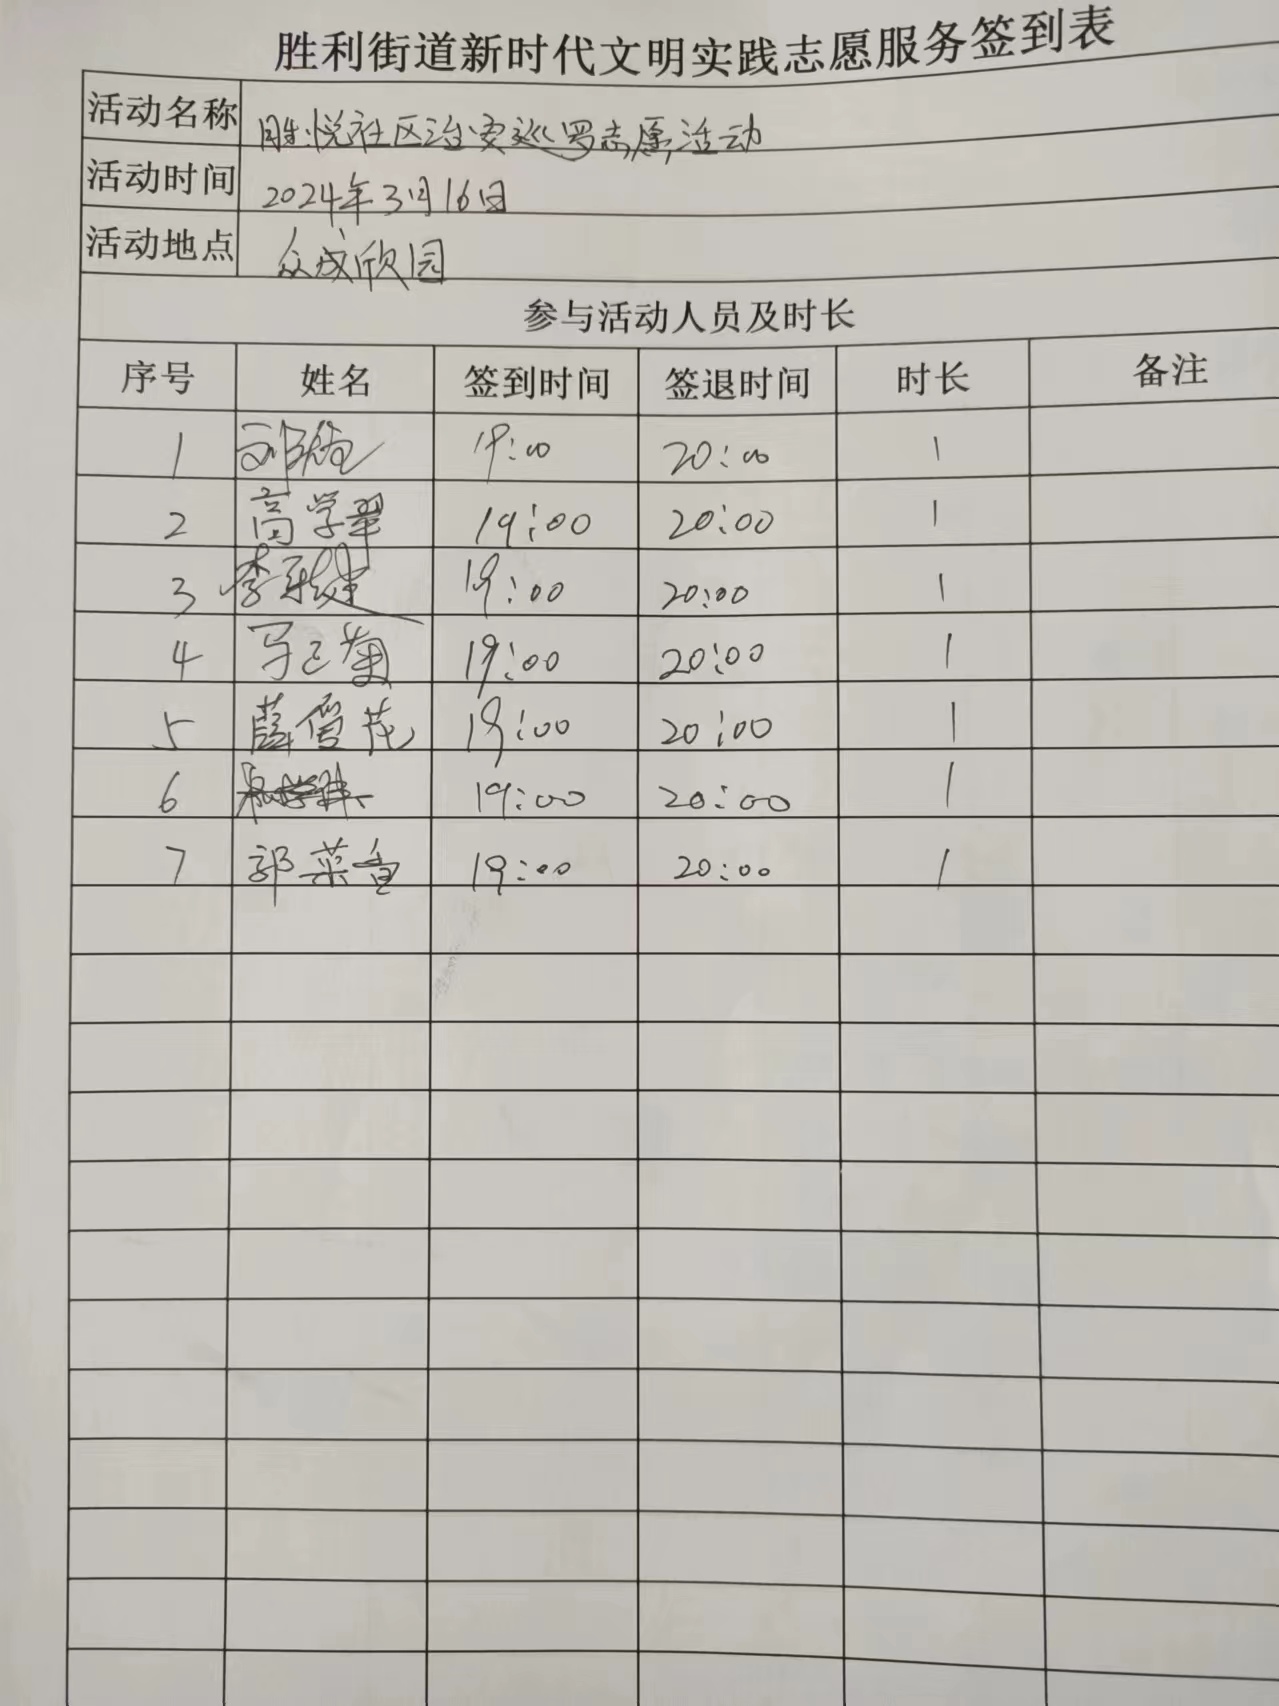 胜利街道新时代文明实践志愿服务签到表
活动名称 胜悦社区治安巡罗志愿活动
活动时间 2024年3月16日
活动地点 众成欣园
参与活动人员及时长
序号 姓名 签到时间 签退时间 时长 备注
1 19:00 20:00 1
2 高学翠 19:00 20:00 1
3 李 19:00 20:00 1
4 19:00 20:00 1
5 薛雪花 19:00 20:00 1
6 19:00 20:00 1
7 郭菜香 19:00 20:00 1